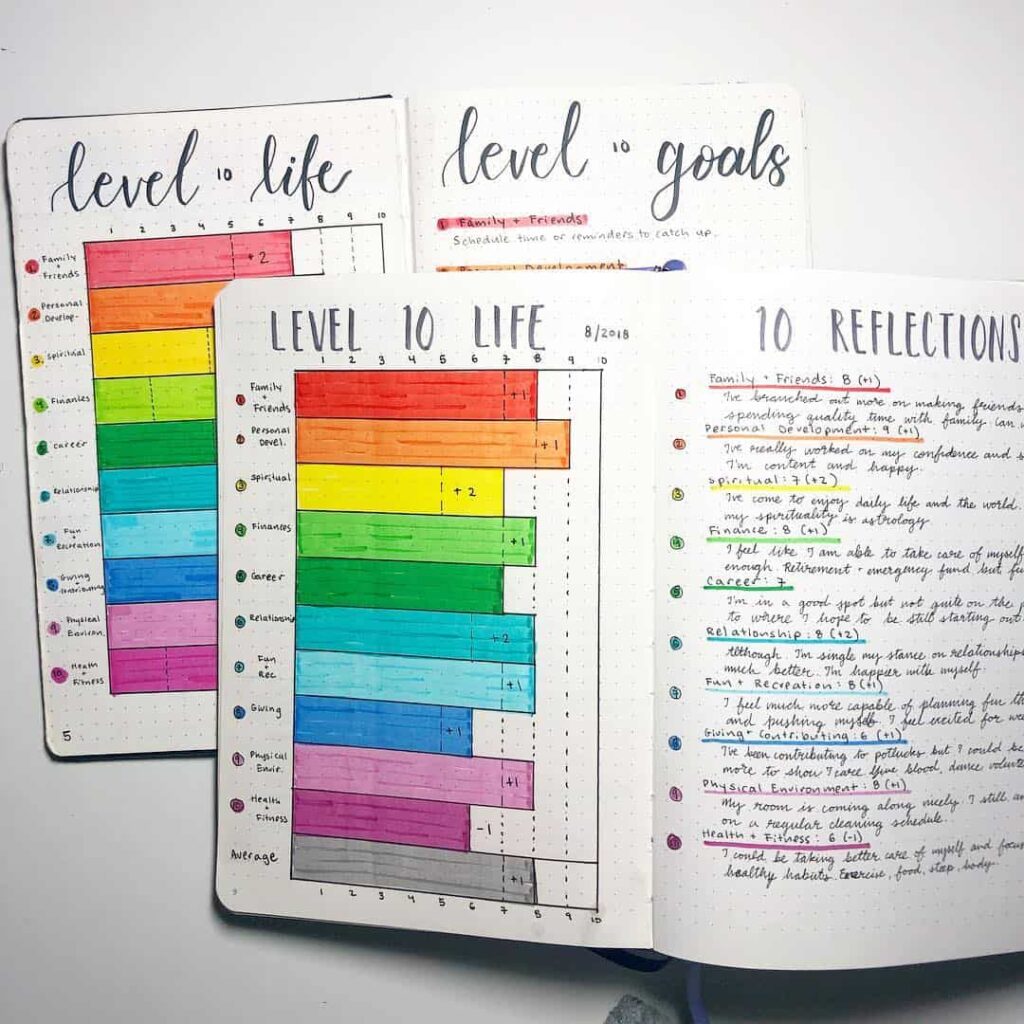 level 10 life
1 2 3 4 5 6 7 8 9 10
1 Family
+
Friends
+2
2 Personal
Develop.
3 Spiritual
4 Finances
5 Career
6 Relationship
7 Fun
+
Recreation
8 Giving
+
Contributing
9 Physical
Environ.
10 Health
+
Fitness
5
level 10 goals
1 Family + Friends
Schedule time or reminders to catch up.
Personal Development
LEVEL 10 LIFE 8/2018
1 2 3 4 5 6 7 8 9 10
1 Family
+
Friends
+1
2 Personal
Devel.
+1
3 Spiritual
+2
4 Finances
+1
5 Career
6 Relationship
+2
7 Fun
+
Rec.
+1
8 Giving
+1
9 Physical
Envir.
+1
10 Health
+
Fitness
-1
Average
+1
1 2 3 4 5 6 7 8 9 10
9
10 REFLECTIONS
1 Family + Friends: 8 (+1)
I've branched out more on making friends
spending quality time with family can
2 Personal Development: 9 (+1)
I've really worked on my confidence and
I'm content and happy.
3 Spiritual: 7 (+2)
I've come to enjoy daily life and the world.
my spirituality is astrology
4 Finance: 8 (+1)
I feel like I am able to take care of myself
enough. Retirement + emergency fund but
5 Career: 7
I'm in a good spot but not quite on the
to where I hope to be still starting out
6 Relationship: 8 (+2)
Although I'm single my stance on relationships
much better. I'm happier with myself.
7 Fun + Recreation: 8 (+1)
I feel much more capable of planning fun
and pushing myself. I feel excited for
8 Giving + Contributing: 6 (+1)
I've been contributing to potlucks but I could be
more to show I care Give blood, dance
9 Physical Environment: 8 (+1)
My room is coming along nicely. I still
on a regular cleaning schedule.
10 Health + Fitness: 6 (-1)
I could be taking better care of myself and
healthy habits. Exercise, food, sleep, body